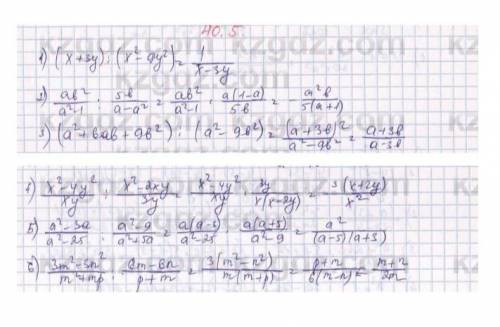 40.5.
1) (x+3y):(x²-9y²)=1/(x-3y)
2) ab²/(a²-1) : 5b/(a-a²) = ab²/(a²-1) · a(1-a)/5b = -a²b/5(a+1)
3) (a²+6ab+9b²):(a²-9b²)=(a+3b)²/(a²-9b²)=(a+3b)/(a-3b)
(x²-4y²)/xy : (x²-2xy)/3y = (x²-4y²)/xy · 3y/x(x-2y) = 3(x+2y)/x²
5) (a²-3a)/(a²-25) : (a²-9)/(a²+5a) = a(a-3)/(a²-25) · a(a+5)/(a²-9) = a²/(a-5)(a+3)
6) (3m²-3n²)/(m²+mp) : (6m-6n)/(p+m) = 3(m²-n²)/m(m+p) = (p+m)/6(m-n) = (m+n)/2m